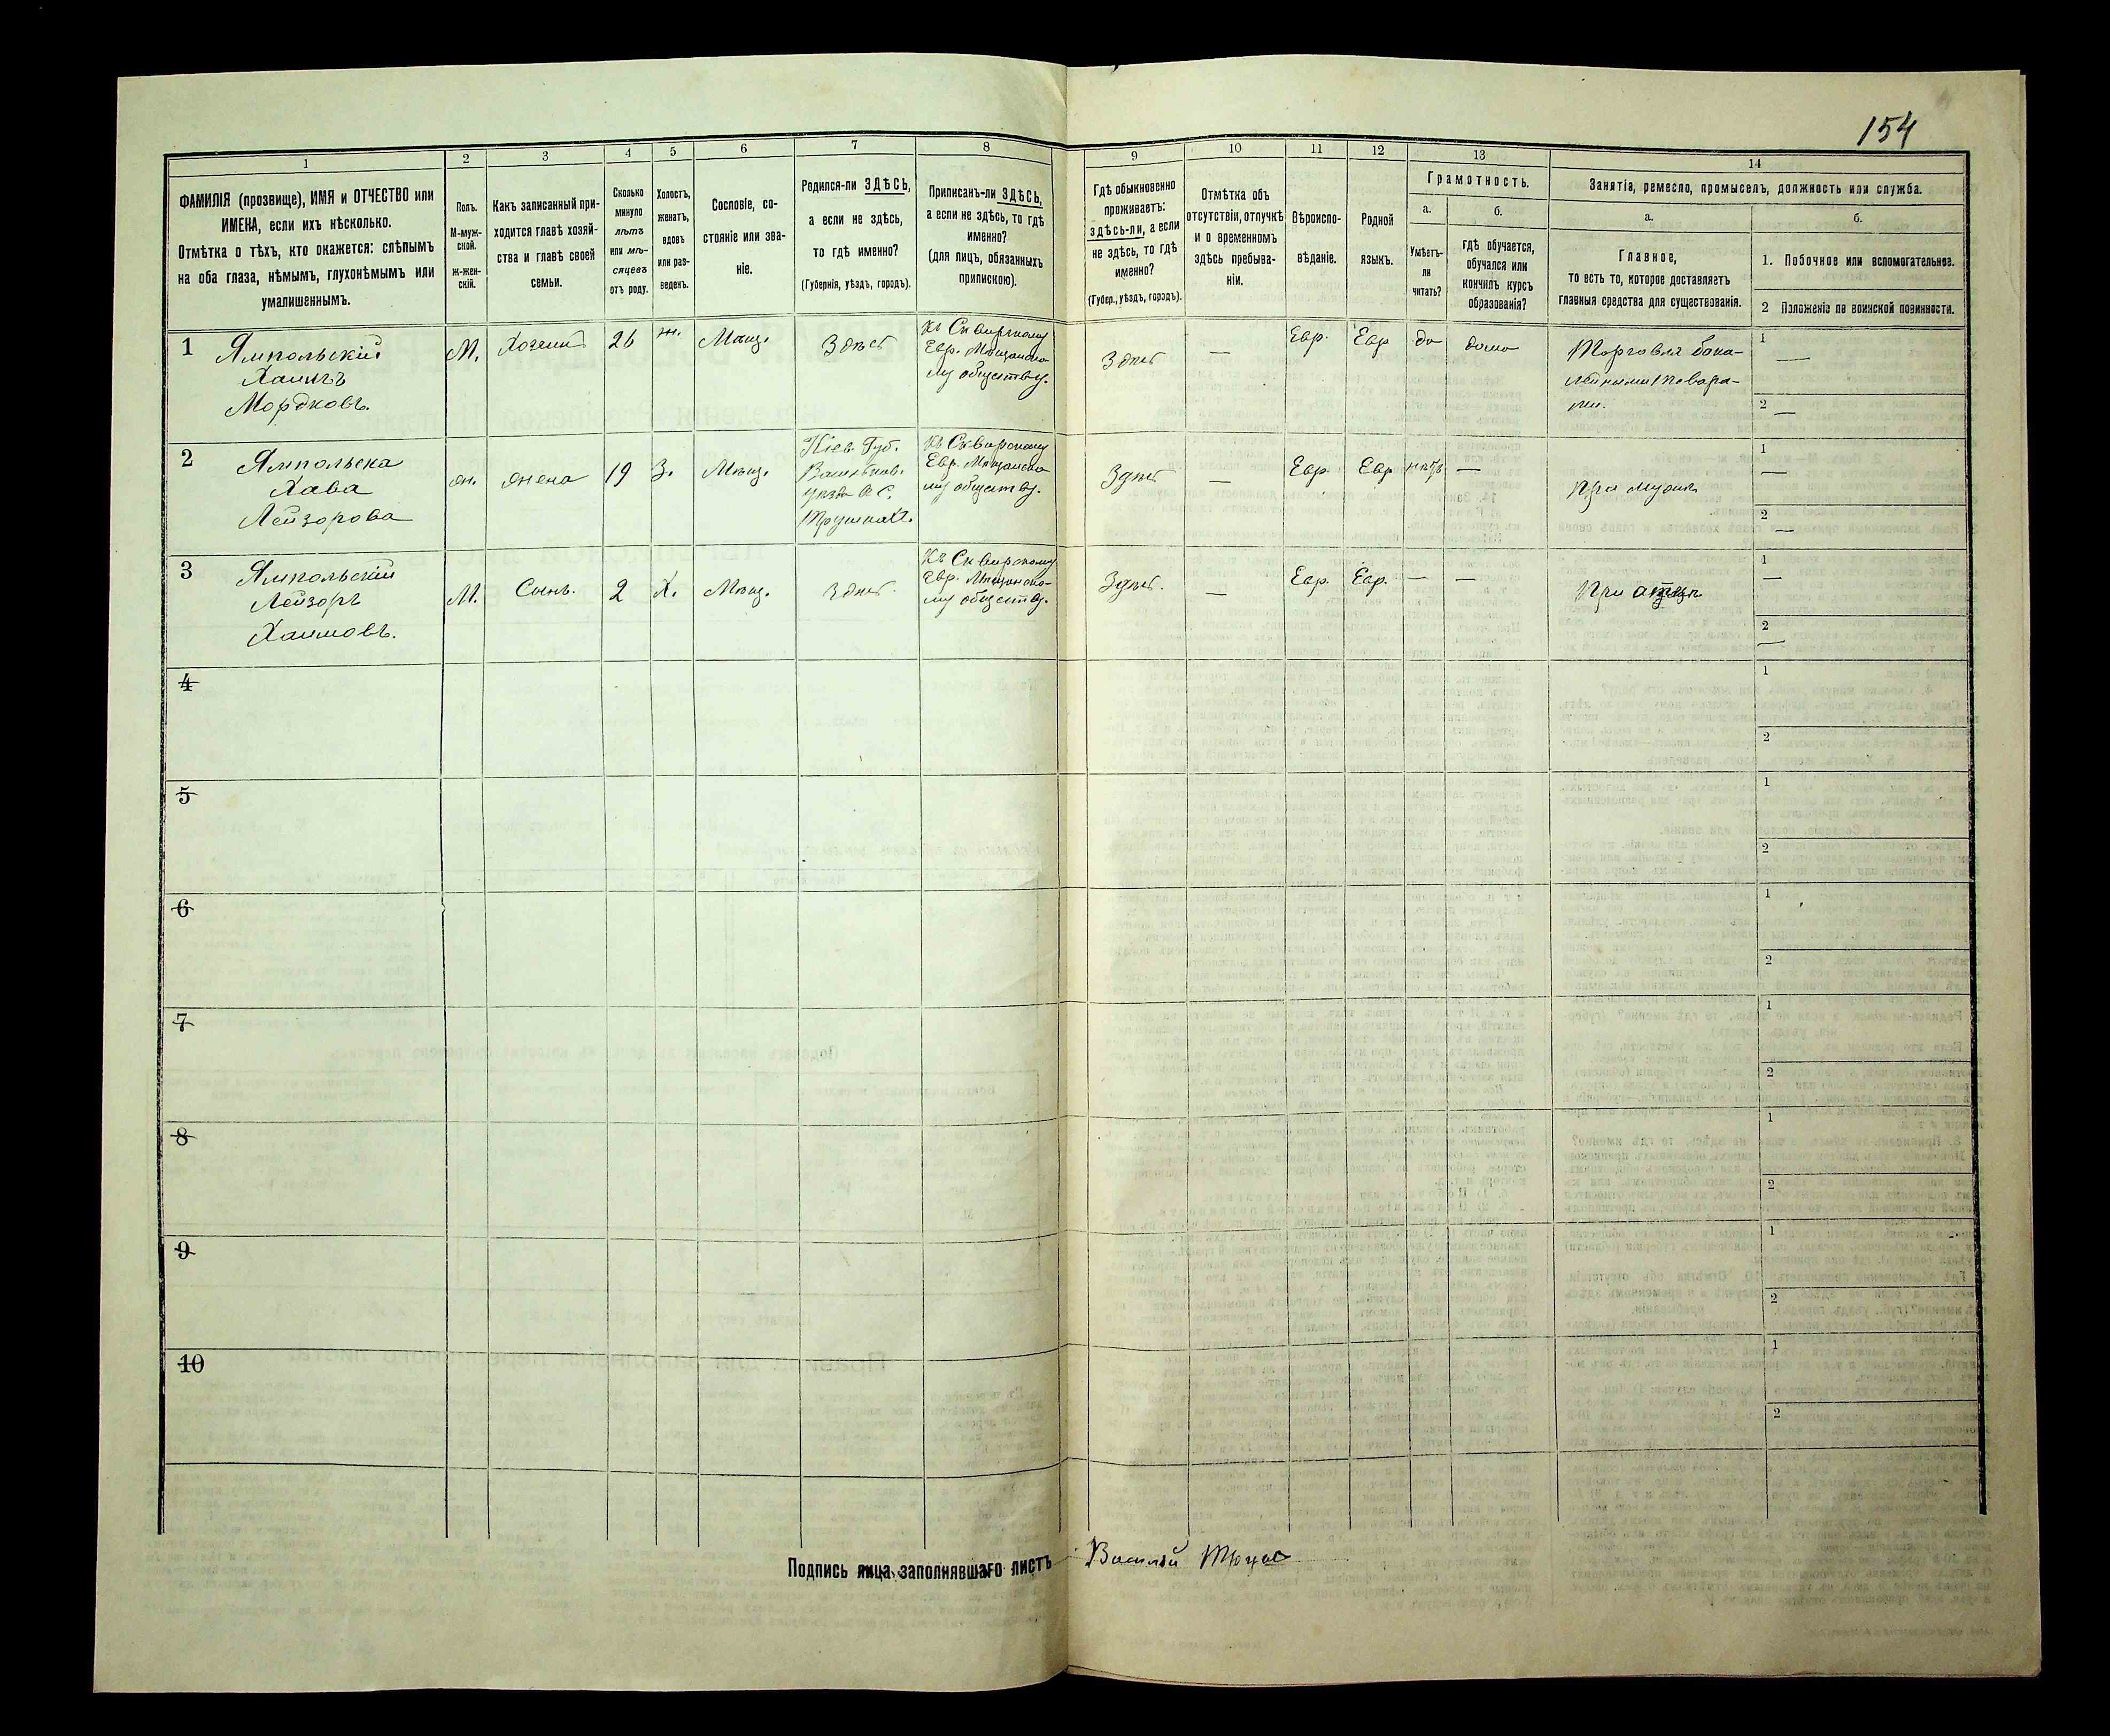 154
1
2
3
4
5
6
7
8
9
10
11
12
13
14
ФАМИЛІЯ (прозвище), ИМЯ и ОТЧЕСТВО или
ИМЕНА, если ихъ нѣсколько.
Отмѣтка о тѣхъ, кто окажется: слѣпымъ
на оба глаза, нѣмымъ, глухонѣмымъ или
умалишеннымъ.
Полъ.
М-муж-
ской.
ж-жен-
скій.
Какъ записанный при-
ходится главѣ хозяй-
ства и главѣ своей
семьи.
Сколько
минуло
лѣтъ
или мѣ-
сяцевъ
отъ роду.
Холостъ,
женатъ,
вдовъ
или раз-
веденъ.
Сословіе, со-
стояніе или зва-
ніе.
Родился-ли ЗДѢСЬ,
а если не здѣсь,
то гдѣ именно?
(Губернія, уѣздъ, городъ).
Приписанъ-ли ЗДѢСЬ,
а если не здѣсь, то гдѣ
именно?
(для лицъ, обязанныхъ
припискою).
Гдѣ обыкновенно
проживаетъ:
здѣсь-ли, а если
не здѣсь, то гдѣ
именно?
(Губер., уѣздъ, городъ).
Отмѣтка объ
отсутствіи, отлучкѣ
и о временномъ
здѣсь пребыва-
ніи.
Вѣроиспо-
вѣданіе.
Родной
языкъ.
Грамотность.
а.
Умѣетъ-
ли
читать?
б.
гдѣ обучается,
обучался или
кончилъ курсъ
образованія?
Занятія, ремесло, промыселъ, должность или служба.
а.
Главное,
то есть то, которое доставляетъ
главныя средства для существованія.
б.
1. Побочное или вспомогательное.
2 Положеніе по воинской повинности.
1
Ямпольскій
Хаимъ
Мордковъ.
М.
Хозяин
26
ж.
Мѣщ.
Здѣсь
Къ Сквирскому
Евр. Мѣщанско-
му обществу.
Здѣсь
—
Евр.
Евр
да
дома
Торговля бака-
лейными товара-
ми.
1
—
2
—
2
Ямпольска
Хава
Лейзорова
ж.
жена
19
З.
Мѣщ.
Кіев. Губ.
Васильков.
уѣзда
Къ Сквирскому
Евр. Мѣщанско
му обществу.
Здѣсь
—
Евр
Евр
нѣтъ
—
При мужѣ
1
—
2
—
3
Ямпольскій
Лейзоръ
Хаимовъ.
М.
Сынъ.
2
Х.
Мѣщ.
Здѣсь
Къ Сквирскому
Евр. Мѣщанско-
му обществу.
Здѣсь.
—
Евр.
Евр.
—
—
При отцѣ
1
—
2
—
4
1
2
5
1
2
6
1
2
7
1
2
8
1
2
9
1
2
10
1
2
Подпись лица, заполнявшаго листъ